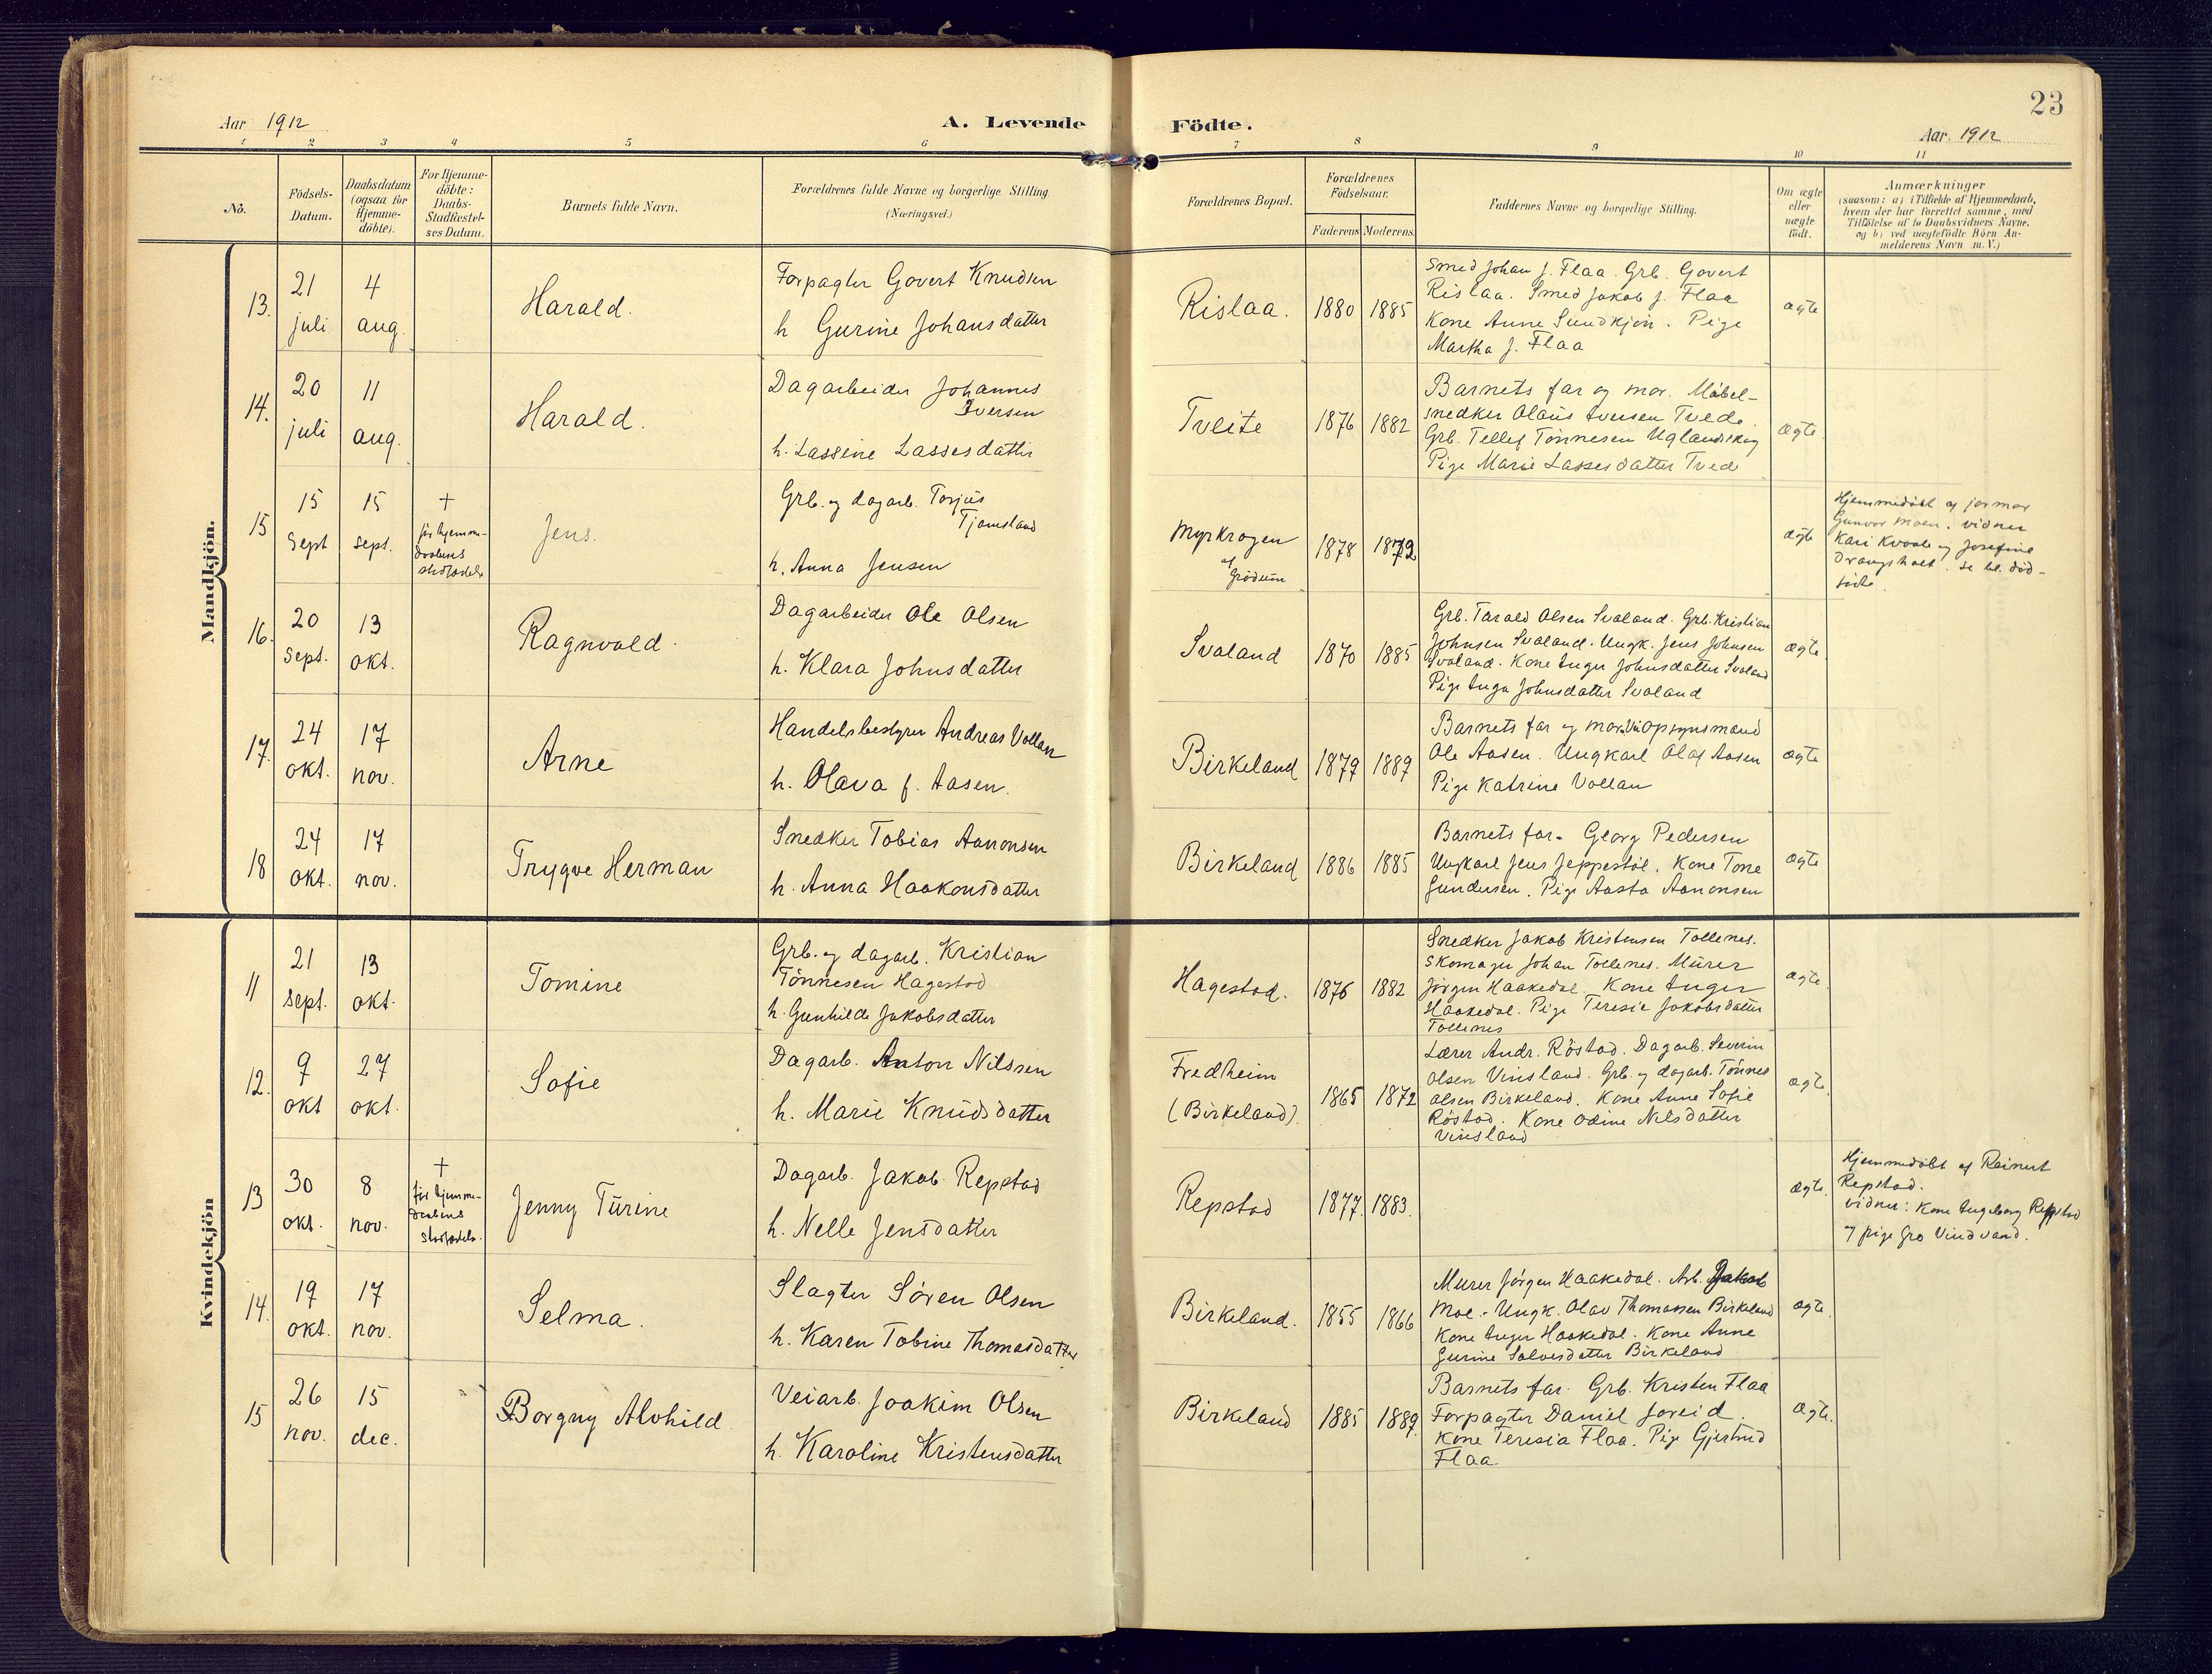 23
Aar 1912
A. Levende Födte.
Aar 1912
1 2 3 4 5 6 7 8 9 10 11
No.
Födsels-
Datum.
Daabsdatum
(ogsaa for
Hjemme-
döbte).
For Hjemme-
döbte:
Daabs-
Stadfæstel-
ses Datum.
Barnets fulde Navn.
Forældrenes fulde Navne og borgerlige Stilling
(Næringsvei.)
Forældrenes Bopæl.
Forældrenes
Födselsaar.
Faderens Moderens
Faddernes Navne og borgerlige Stilling.
Om ægte
eller
uægte
födt.
Anmærkninger
(saasom: a) i Tilfælde af Hjemmedaab,
hvem der har forrettet samme, med
Tilföielse af to Daabsvidners Navne,
og b) ved uægtefödte Börn An-
melderens Navn m. V.)
Mandkjön.
13.
21
juli
4
aug.
Harald.
Forpagter Govert Knudsen
h Gurine Johansdatter
Rislaa.
1880 1885
Smed Johan J. Flaa. Grb. Govert
Rislaa. Smed Jakob J. Flaa
Kone Anne Sundkjön. Pige
Martha J. Flaa
ægte
14.
20
juli
11
aug.
Harald.
Dagarbeider Johannes
Iversen
h. Lassine Lassesdatter
Tveite
1876 1882
Barnets far og mor. Möbel-
snedker Olaus Iversen Tvede.
Grb. Tellef Tönnesen Uglandskog
Pige Marie Lassesdatter Tvede
ægte
15
15
Sept
15
sept.
+
för hjemme-
daabens
stadfæstelse
Jens.
Grb. og dagarb. Torjus
Tjomsland
h. Anna Jensen
Myrkrogen
af
Grödum
1878 1872
ægte
Hjemmedöbt af jormor
Gunvor Moen. vidner
Kari Kvaale og Josefine
Drangsholt. se bl. död-
födte.
16.
20
Sept.
13
okt.
Ragnvald.
Dagarbeider Ole Olsen
h. Klara Johnsdatter
Svaland
1870 1885
Grb. Tarald Olsen Svaland. Grb. Kristian
Johnsen Svaland. Ungk. Jens Johnsen
Svaland. Kone Inger Johnsdatter Svaland
Pige Inga Johnsdatter Svaland
ægte
17.
24
okt.
17
nov.
Arne
Handelsbestyrer Andreas Vollan
h. Olava f. Aasen.
Birkeland
1879 1889
Barnets far og mor. Veiopsynsmand
Ole Aasen. Ungkarl Olaf Aasen
Pige Katrine Vollan
ægte
18
24
okt.
17
nov.
Trygve Herman
Snedker Tobias Aanonsen
h. Anna Haakonsdatter
Birkeland
1886 1885
Barnets far. Georg Pedersen
Ungkarl Jens Jeppestöl. Kone Tone
Gundersen. Pige Aasta Aanonsen
ægte
Kvindekjön
11
21
sept.
13
okt.
Tomine
Grb. og dagarb. Kristian
Tönnesen Hagestad
h. Gunhilde Jakobsdatter
Hagestad.
1876 1882
Snedker Jakob Kristensen Tollenes.
Skomager Johan Tollenes. Murer
Jörgen Haakedal. Kone Inger
Haakedal. Pige Teresie Jakobsdatter
Tollenes
ægte
12.
9
okt
27
okt.
Sofie
Dagarb. Anton Nilssen
h. Marie Knudsdatter
Fredheim
(Birkeland)
1865 1872
Lærer Andr. Röstad. Dagarb. Severin
Olsen Vinsland. Grb. og dagarb. Tönnes
Olsen Birkeland. Kone Anne Sofie
Röstad. Kone Odine Nilsdatter
Vinsland
ægte
13
30
okt.
8
nov.
+
för hjemme-
daabens
stadfæstelse.
Jenny Turine
Dagarb. Jakob Repstad
h. Nelle Jensdatter
Repstad
1877 1883.
ægte.
Hjemmedöbt af Reinert
Repstad.
vidner: Kone Ingeborg Repstad
og pige Gro Vindvand.
14.
19
okt.
17
nov.
Selma.
Slagter Sören Olsen
h. Karen Tobine Thomasdatter
Birkeland.
1855 1866
Murer Jörgen Haakedal. Arb. Jakob
Moe. Ungk. Olav Thomassen Birkeland
Kone Inger Haakedal. Kone Anne
Gurine Salvesdatter Birkeland
ægte
15
26
nov.
15
dec.
Borgny Alvhild
Veiarb. Joakim Olsen
h. Karoline Kristensdatter
Birkeland
1885 1889
Barnets far. Grb. Kristen Flaa
Forpagter Daniel Joreid.
Kone Teresia Flaa. Pige Gjertrud
Flaa
ægte.